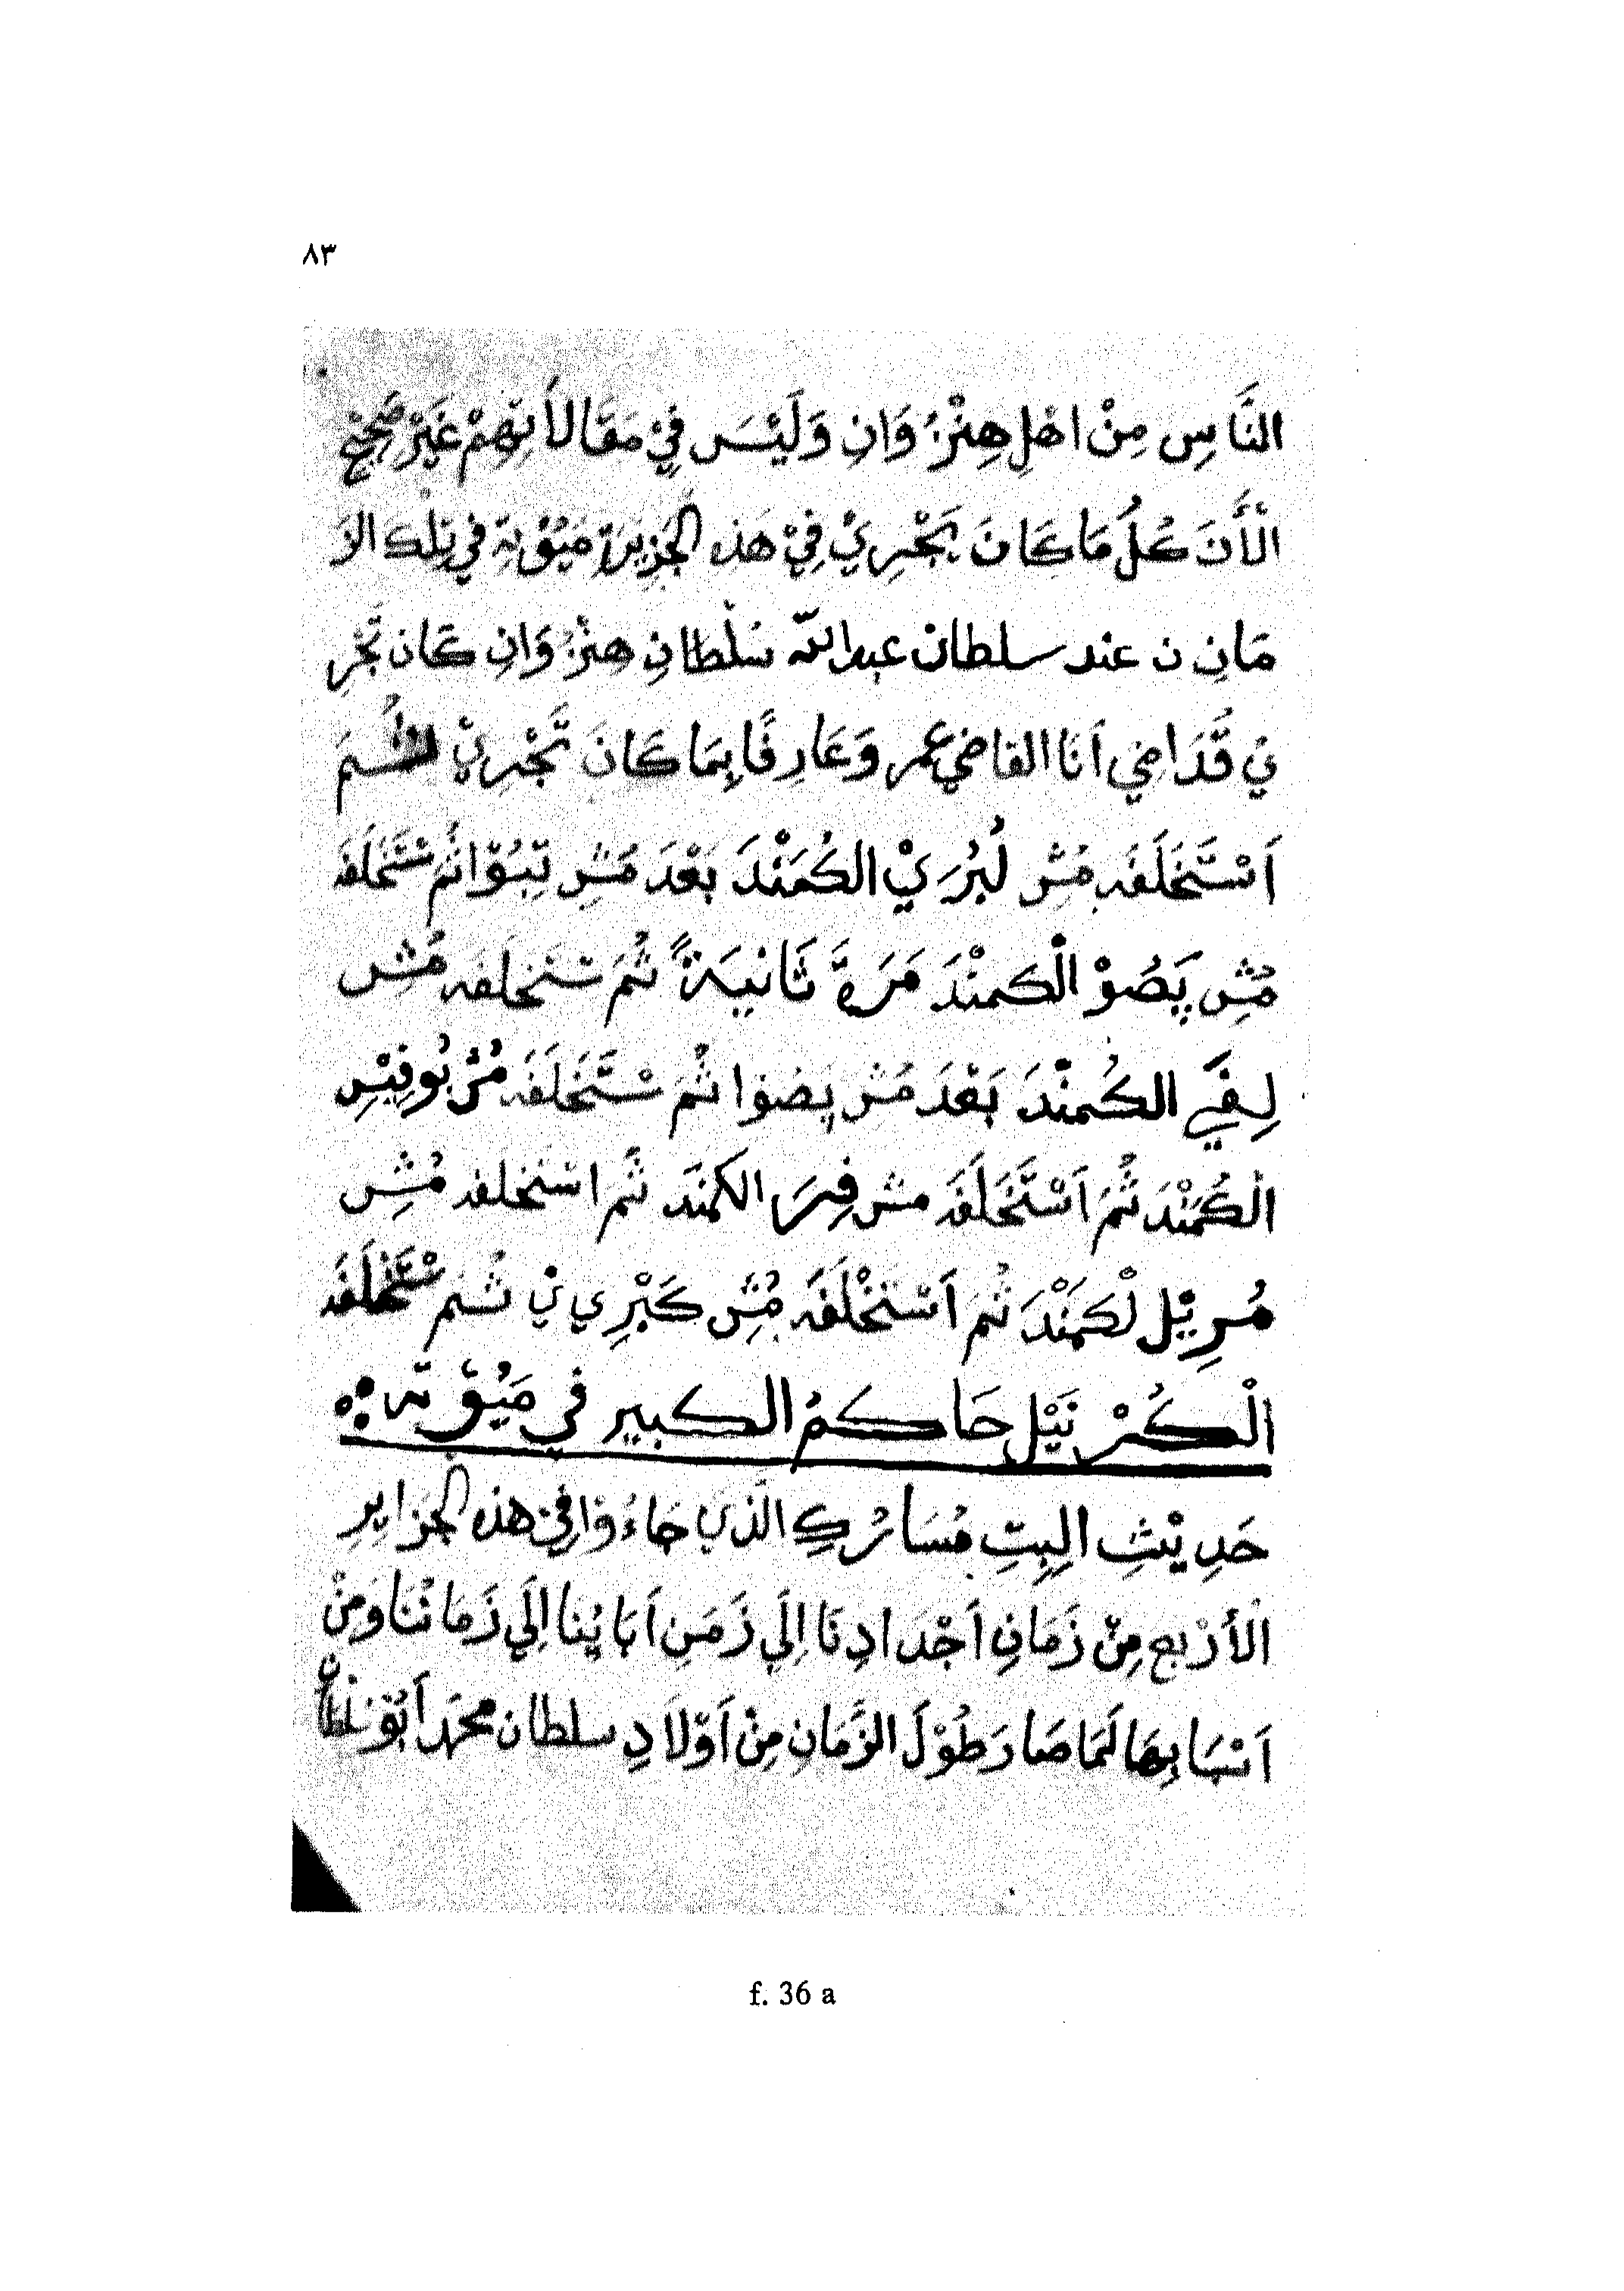 ٨٣
النَّاسِ مِنْ اهْلِ هِنْزُ وَانِ وَلَيْسَ فِيْ مَقَالَاتِهِمْ غَيْرَ صَحِيْحٍ
الْأَنَ كُلُ مَا كَانَ يَجْرِيْ فِيْ هَذِهِ الْجَزِيْرَةِ مَيُوْتَةِ فِي تِلْكَ الزَ
مَانِ ن عند سلطان عبد الله سُلْطَانِ هِنْزُ وَانِ كَانَ تَجْرِ
يْ قَدَامِي اَنَا القاضي عمر وَعَارِفًا بِمَا كَانَ تَجْرِيْ ثُمَ
اَسْتَخْلَفَه مُشِ لُبُرَيْ الكُمَنْدَ بَعْدَ مُشِ تِبُوْا ثُمَ سْتَخْلَفَه
مُشِ پَصُوْ الْكمنْدَ مَرَةً ثَانِيَةً ثُمَ سْتخلَفه مُشِ
لِفَيْ الكُمنْدَ بَعْدَ مُش پَصُوْا ثُمَ سْتَخْلَفَه مُشْ بُوفِيْسِ
الْكُمَنْدَ ثُمَ اَسْتَخْلَفَه مش فِرَ الكمَنْدَ ثُمَ اسْتخلفه مُشِ
مُرِيْل لْكمَنْدَ ثُمَ اَسْتخْلَفَه مُشِ كَبْرِي يْ ثُمَ سْتَخْلَفَه
الْكُرْنَيْل حَاكمُ الكبير في مَيُوْتَه
حَدِيْثِ البِتِ مُسَارُكِ الَّذِي جَاءُوْا فِيْ هذه الجزاير
الأرْبع مِنْ زَمَانِ اَجْدَادِنَا اِلَي زَمَنِ اَبَايُنا اِلَي زَمَانُنَا وَمِنْ
اَنْسَابِهَا لَمَا صَارَ طُوْلَ الزَّمَانِ مِنْ اَوْلَادِ سلطان محمد اَبُوْ سُلطان
f. 36 a